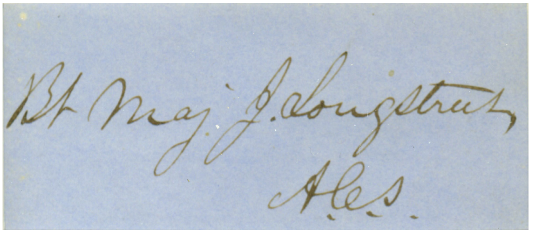 Bt Maj. J. Longstreet,
A.C.S.